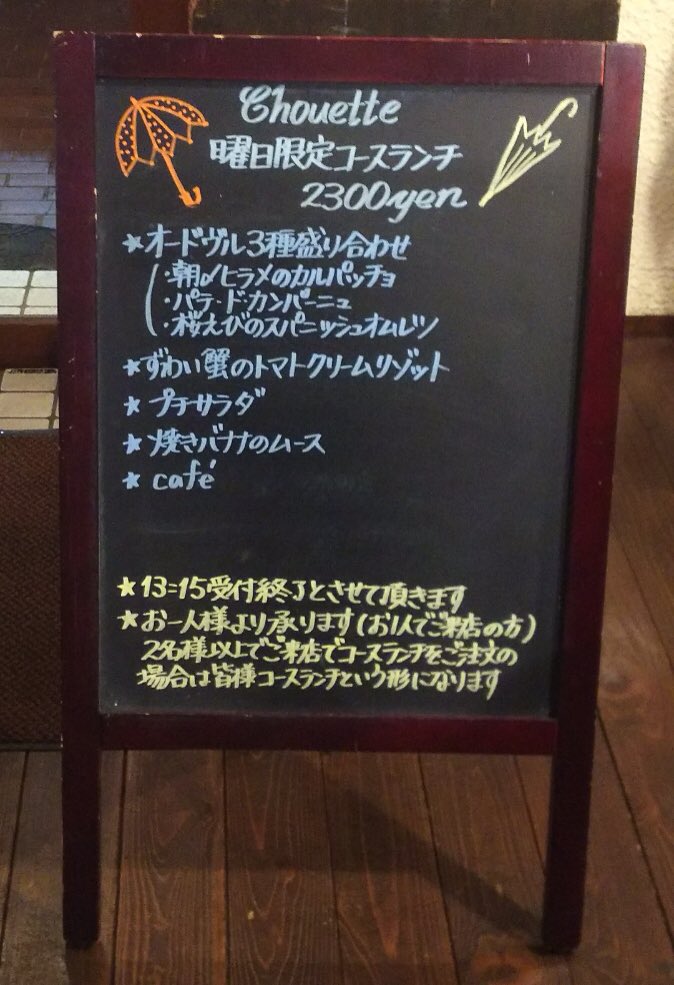 Chouette
曜日限定コースランチ
2300yen
★オードヴル3種盛り合わせ
・朝〆ヒラメのカルパッチョ
・パテ・ド・カンパーニュ
・桜えびのスパニッシュオムレツ
★ずわい蟹のトマトクリームリゾット
★プチサラダ
★焼きバナナのムース
★café
★13:15受付終了とさせて頂きます
★お一人様より承ります(お1人でご来店の方)
2名様以上でご来店でコースランチをご注文の
場合は皆様コースランチという形になります